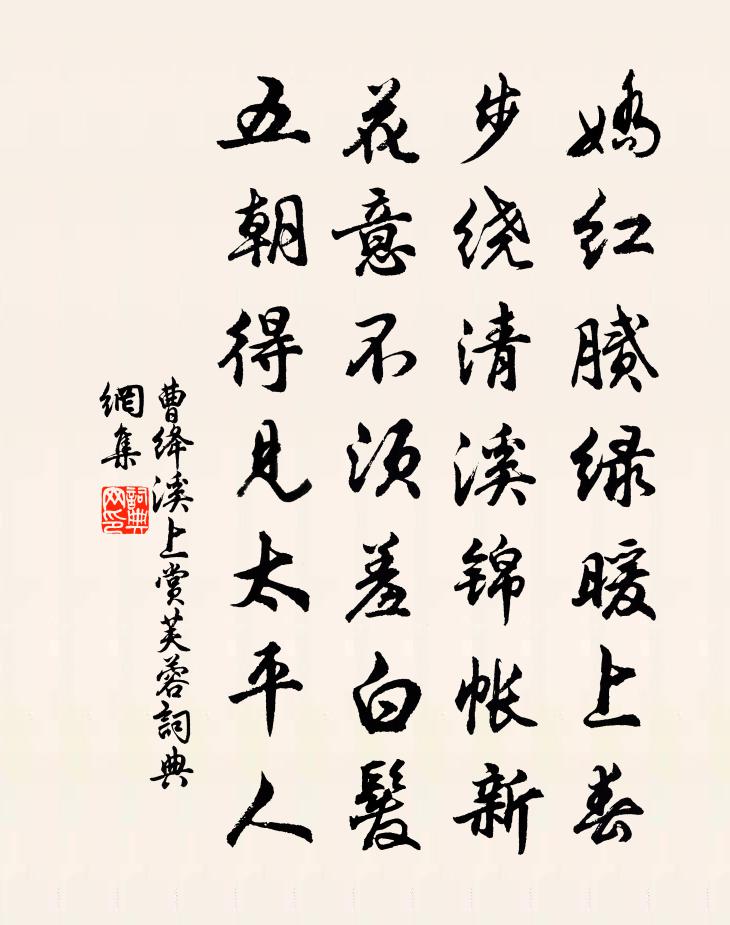 娇红腻绿暖上春
步绕清溪锦帐新
花意不须羞白髮
五朝得见太平人
曹绛溪上赏芙蓉詞典
網集
詞典网印